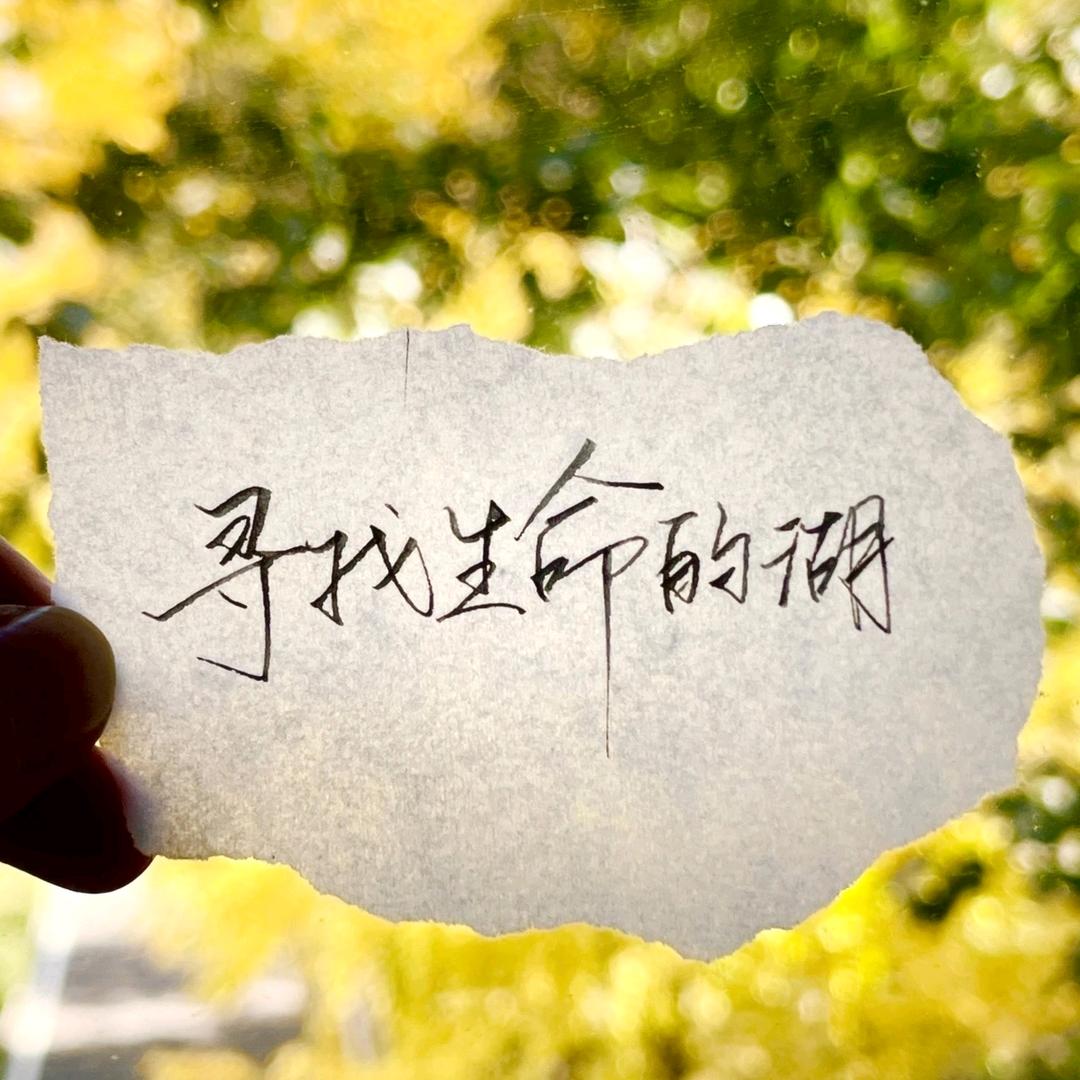 寻找生命的湖